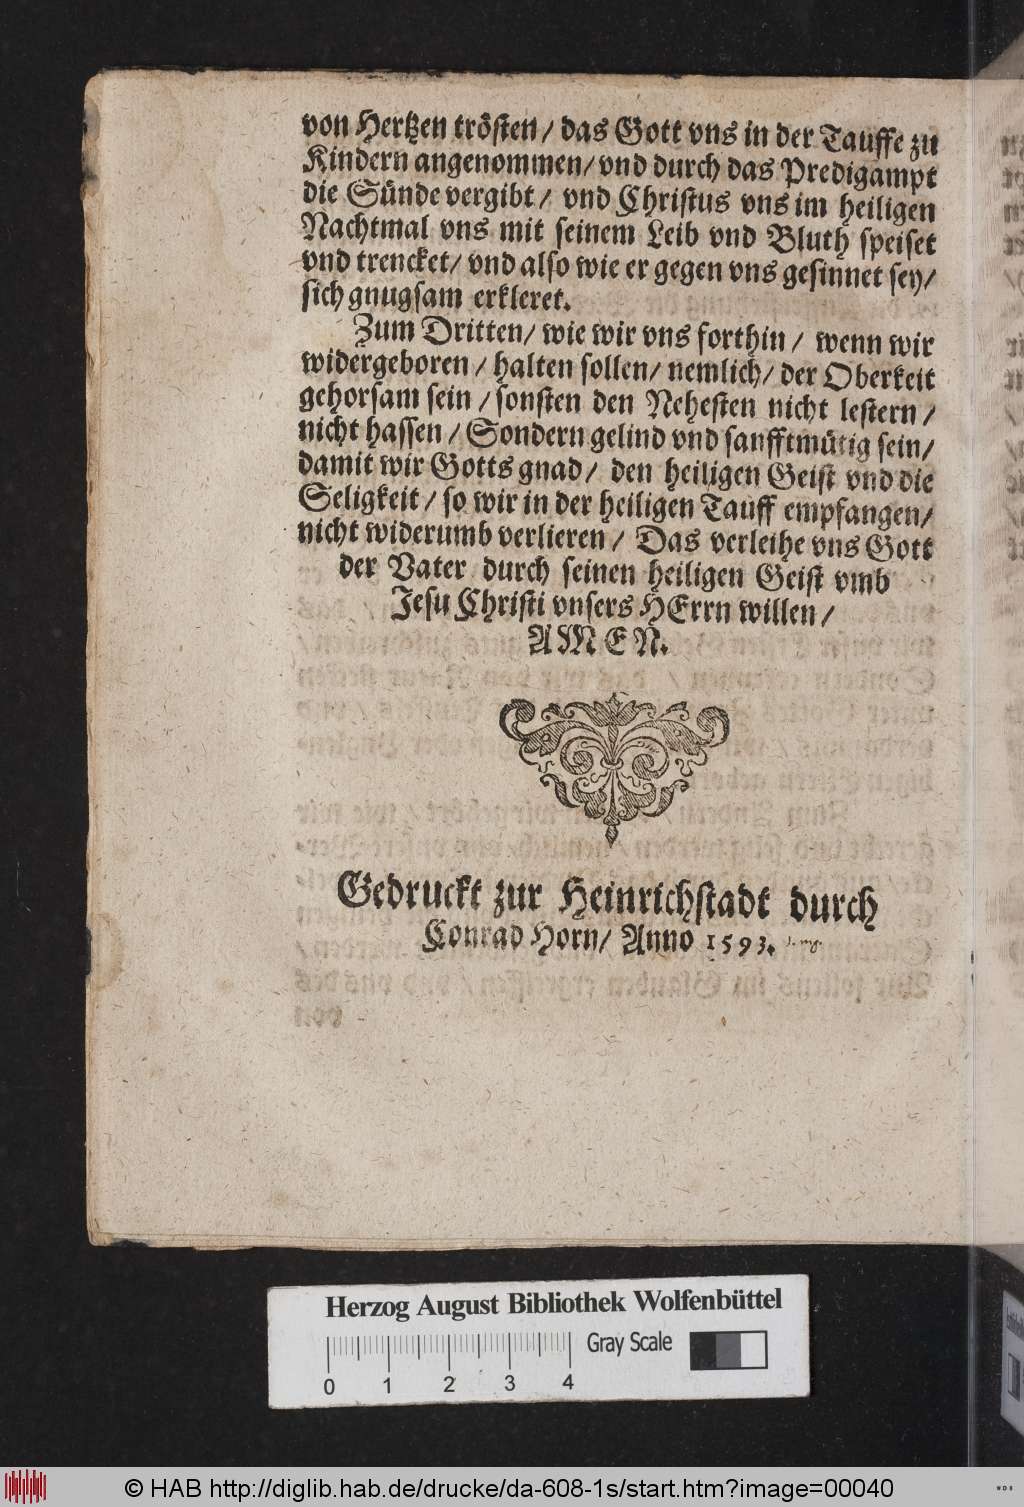 von Hertzen trösten / das Gott vns in der Tauffe zu
Kindern angenommen / vnd durch das Predigampt
die Sünde vergibt / vnd Christus vns im heiligen
Nachtmal vns mit seinem Leib vnd Bluth speiset
vnd trencket / vnd also wie er gegen vns gesinnet sey /
sich gnugsam erkleret.
Zum Dritten / wie wir vns forthin / wenn wir
widergeboren / halten sollen / nemlich / der Oberkeit
gehorsam sein / sonsten den Nehesten nicht lestern /
nicht hassen / Sondern gelind vnd sanfftmütig sein /
damit wir Gotts gnad / den heiligen Geist vnd die
Seligkeit / so wir in der heiligen Tauff empfangen /
nicht widerumb verlieren / Das verleihe vns Gott
der Vater durch seinen heiligen Geist vmb
Jesu Christi vnsers HErrn willen /
AMEN.
Gedruckt zur Heinrichstadt durch
Conrad Horn / Anno 1593.
Herzog August Bibliothek Wolfenbüttel
Gray Scale
0 1 2 3 4
© HAB http://diglib.hab.de/drucke/da-608-1s/start.htm?image=00040